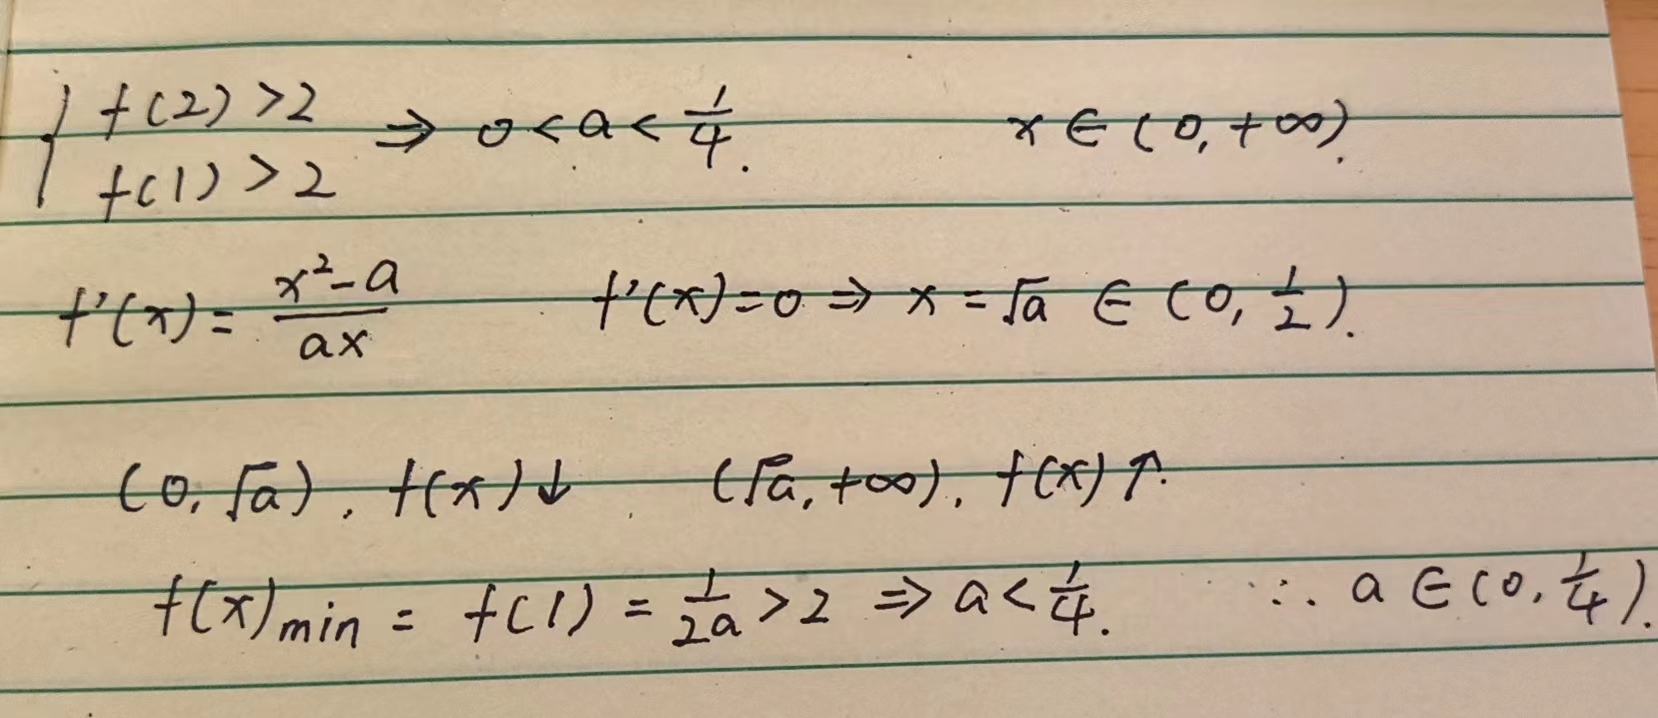 { f(2)>2
f(1)>2 ⇒ 0<a<1/4. x∈(0,+∞).
f'(x)= (x²-a)/(ax) f'(x)=0 ⇒ x=√a ∈(0, 1/2).
(0,√a), f(x)↓ (√a,+∞), f(x)↑.
f(x)min = f(1) = 1/(2a) >2 ⇒ a<1/4. ∴ a∈(0, 1/4).